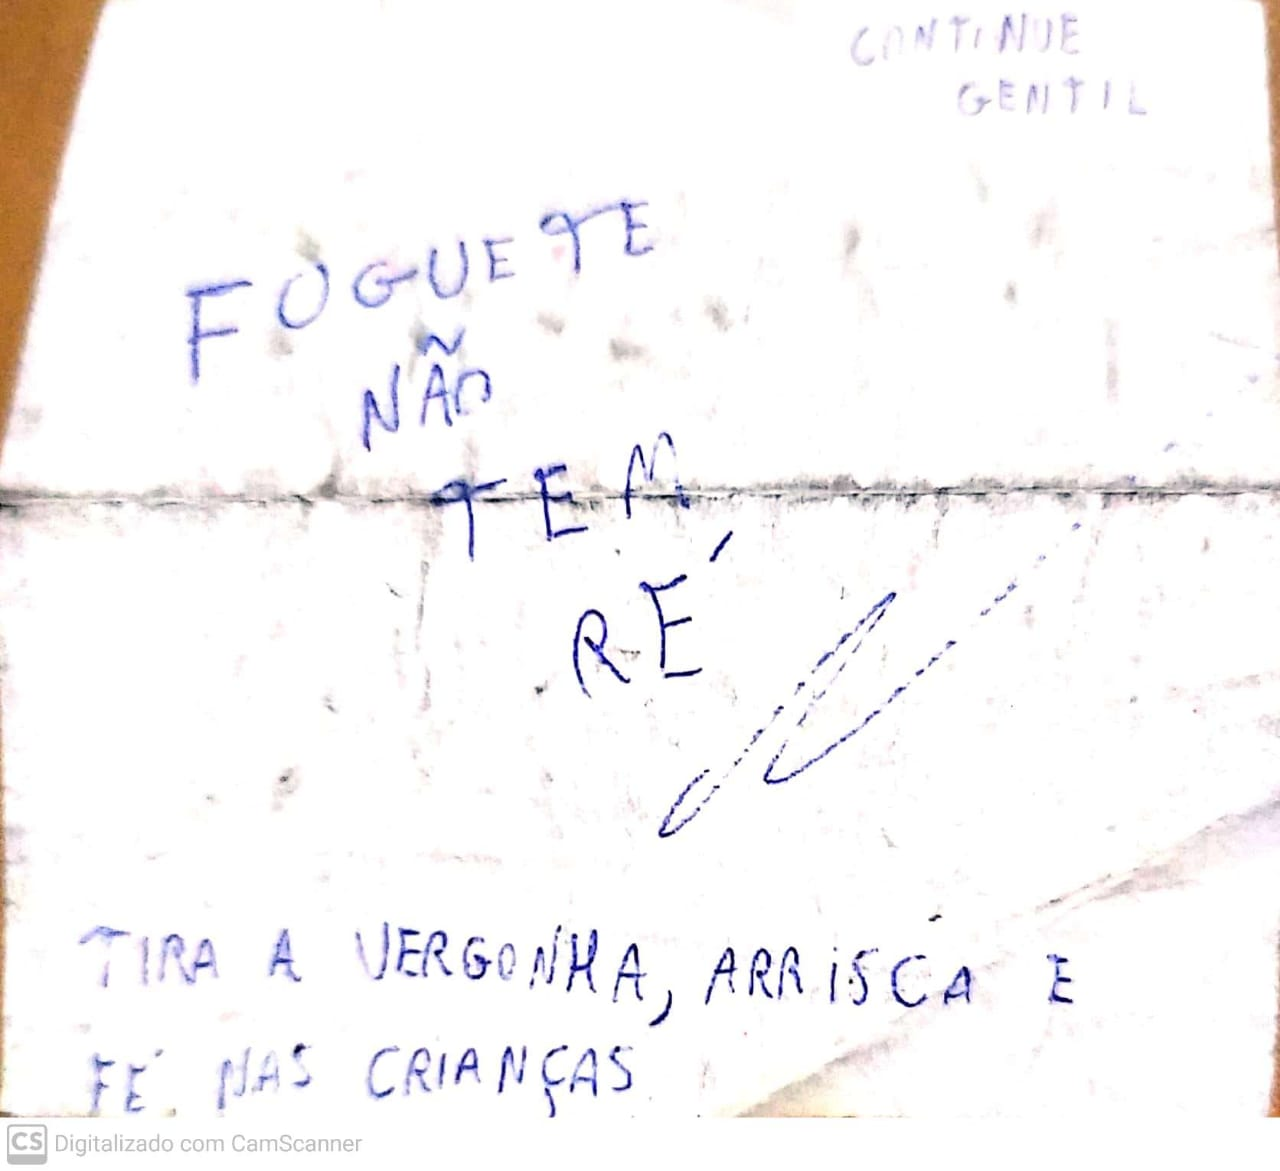 CONTINUE
GENTIL
FOGUETE
NÃO
TEM
RÉ
TIRA A VERGONHA, ARRISCA E
FÉ NAS CRIANÇAS
CS Digitalizado com CamScanner